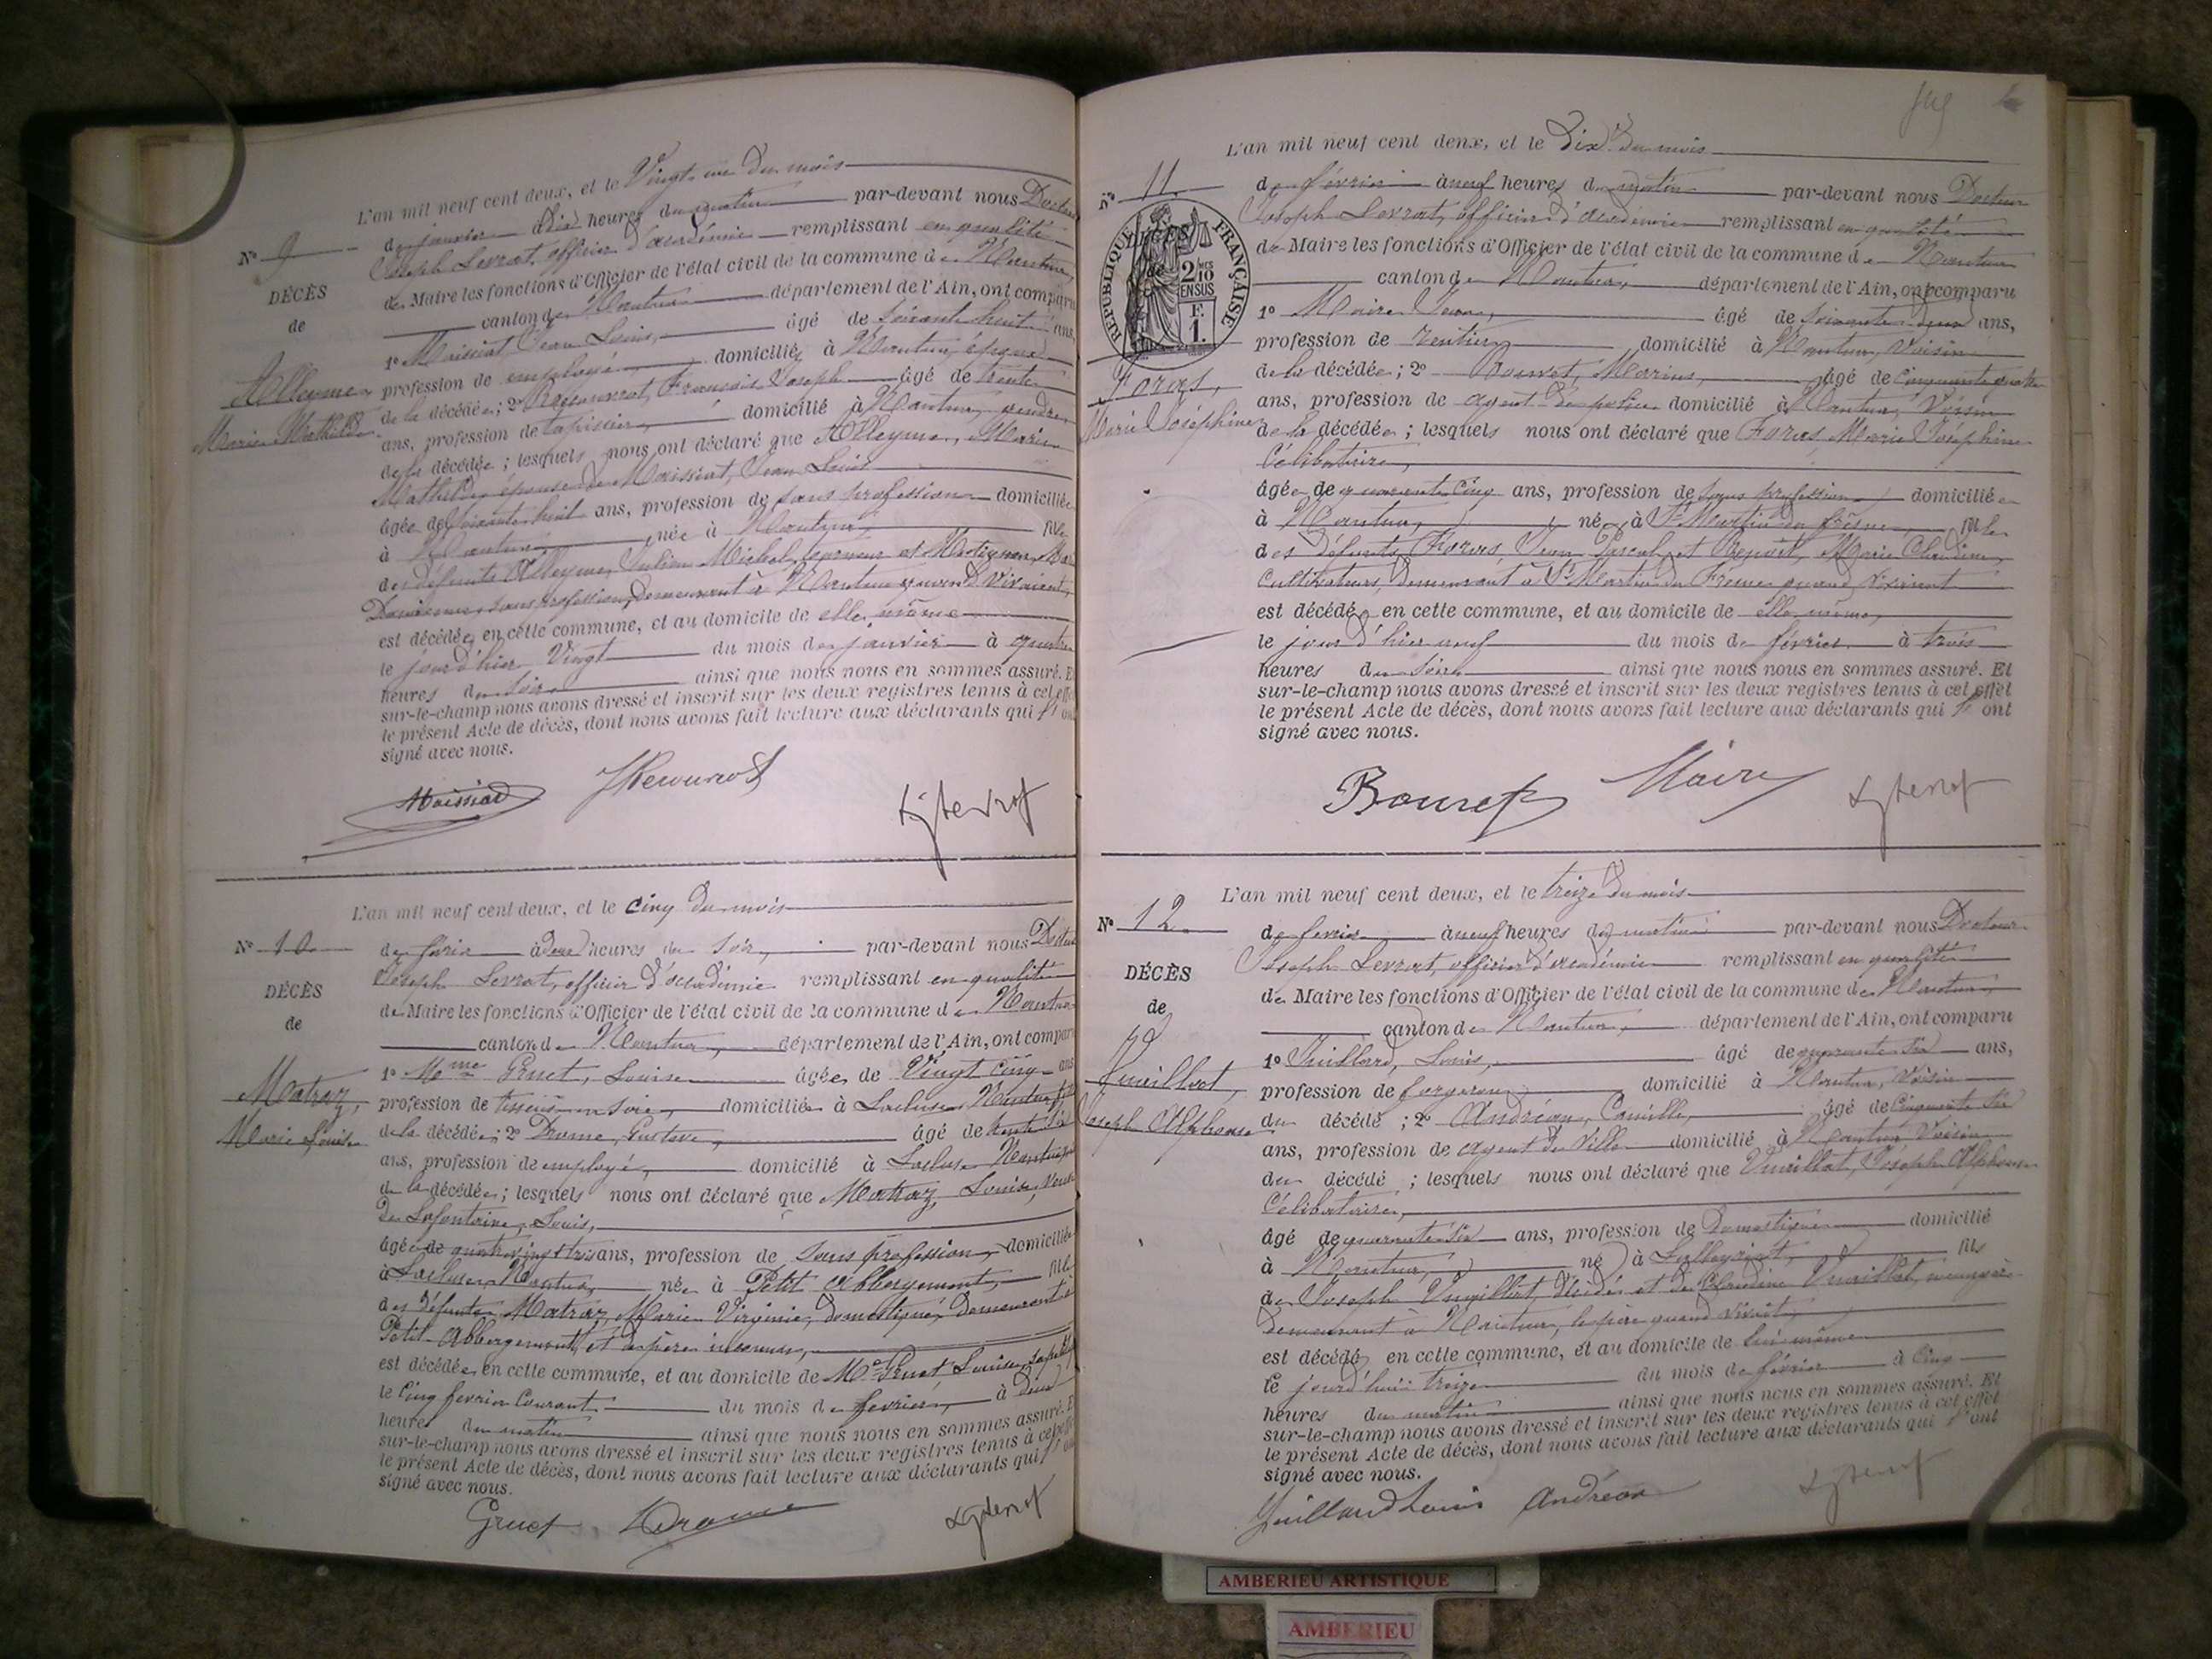 L'an mil neuf cent deux, et le Vingt-un du mois
N° 9
de janvier à dix heures du matin par-devant nous Docteur
Joseph Levrat, officier d'académie remplissant en qualité
de Maire les fonctions d'Officier de l'état civil de la commune de Nantua,
canton de Nantua département de l'Ain, ont comparu
1° Moissiat, Jean Louis, âgé de soixante huit ans,
profession de employé domicilié à Nantua, époux
de la décédée; 2° François Joseph âgé de trente
ans, profession de tapissier, domicilié à Nantua, gendre
de la décédée; lesquels nous ont déclaré que Alleyme, Marie
Mathilde épouse de Moissiat, Jean Louis
âgée de soixante huit ans, profession de sans profession domiciliée
à Nantua, née à Nantua fille
des défunts Alleyme, Julien Michel, et
sans profession, demeurant à Nantua quand vivaient,
est décédée en cette commune, et au domicile de elle même
le jour d'hier Vingt du mois de janvier à quatre
heures du soir ainsi que nous nous en sommes assuré. Et
sur-le-champ nous avons dressé et inscrit sur les deux registres tenus à cet effet
le présent Acte de décès, dont nous avons fait lecture aux déclarants qui l'ont
signé avec nous.
DÉCÈS
de
Alleyme
Marie Mathilde
Moissiat
L'an mil neuf cent deux, et le cinq du mois
N° 10
de février à deux heures du soir, par-devant nous Docteur
Joseph Levrat, officier d'académie remplissant en qualité
de Maire les fonctions d'Officier de l'état civil de la commune de Nantua
canton de Nantua, département de l'Ain, ont comparu
1° Mme Gruet, Louise âgée de Vingt cinq ans
profession de tisseuse en soie, domiciliée à Lacluse Nantua
de la décédée; 2° Drome, Gustave, âgé de trente
ans, profession de employé, domicilié à Lacluse Nantua
de la décédée; lesquels nous ont déclaré que Matraz, Louise, veuve
de Lafontaine, Louis,
âgée de quatre vingt trois ans, profession de sans profession, domiciliée
à Lacluse Nantua, née à Petit Abbergement, fille
des défunts Matraz, Marie Virginie, domestique, demeurant à
Petit-Abbergement, et de père inconnu,
est décédée en cette commune, et au domicile de Me Gruet Louise,
le cinq fevrier courant du mois de fevrier, à deux
heures du matin ainsi que nous nous en sommes assuré. Et
sur-le-champ nous avons dressé et inscrit sur les deux registres tenus à cet effet
le présent Acte de décès, dont nous avons fait lecture aux déclarants qui l'ont
signé avec nous.
DÉCÈS
de
Matraz,
Marie Louise
Gruet Drome
L'an mil neuf cent deux, et le Dix du mois
N° 11
de février à neuf heures du matin par-devant nous Docteur
Joseph Levrat, officier d'académie remplissant en qualité
de Maire les fonctions d'Officier de l'état civil de la commune de Nantua
canton de Nantua, département de l'Ain, ont comparu
1° Maire Jean, âgé de soixante deux ans,
profession de rentier domicilié à Nantua, Voisin
de la décédée; 2° Bouvet, Marius, âgé de cinquante quatre
ans, profession de agent de police domicilié à Nantua, Voisin
de la décédée; lesquels nous ont déclaré que Foras, Marie Joséphine
Célibataire,
âgée de quarante cinq ans, profession de sans profession domiciliée
à Nantua, née à St Martin du frêsne, fille
des défunts Foras, Jean Pascal, et Benoit, Marie Claudine,
Cultivateurs, demeurant à St Martin du Frêsne quand vivaient
est décédée en cette commune, et au domicile de elle même,
le jour d'hier neuf du mois de février à trois
heures du soir ainsi que nous nous en sommes assuré. Et
sur-le-champ nous avons dressé et inscrit sur les deux registres tenus à cet effet
le présent Acte de décès, dont nous avons fait lecture aux déclarants qui l'ont
signé avec nous.
DÉCÈS
de
RÉPUBLIQUE FRANÇAISE
2/10
EN SUS
F.
1.
Foras,
Marie Joséphine
Bouvet Maire
L'an mil neuf cent deux, et le treize du mois
N° 12
de fevrier à neuf heures du matin par-devant nous Docteur
Joseph Levrat, officier d'académie remplissant en qualité
de Maire les fonctions d'Officier de l'état civil de la commune de Nantua
canton de Nantua, département de l'Ain, ont comparu
1° Juillard, Louis, âgé de quarante six ans,
profession de forgeron domicilié à Nantua, Voisin
du décédé; 2° Andréan, Camille, âgé de cinquante six
ans, profession de agent de Ville domicilié à Nantua Voisin
du décédé; lesquels nous ont déclaré que Vuaillat, Joseph Alphonse
Célibataire,
âgé de quarante six ans, profession de Domestique domicilié
à Nantua, né à Lalleyriat, fils
de Joseph Vuaillat décédé et de Claudine Vuaillat, ménagère
demeurant à Nantua, le père quand vivait,
est décédé en cette commune, et au domicile de lui même
le jourd'hui treize du mois de février à cinq
heures du matin ainsi que nous nous en sommes assuré. Et
sur-le-champ nous avons dressé et inscrit sur les deux registres tenus à cet effet
le présent Acte de décès, dont nous avons fait lecture aux déclarants qui l'ont
signé avec nous.
DÉCÈS
de
Vuaillat,
Joseph Alphonse
Juillard Louis Andréan
AMBERIEU ARTISTIQUE
AMBERIEU